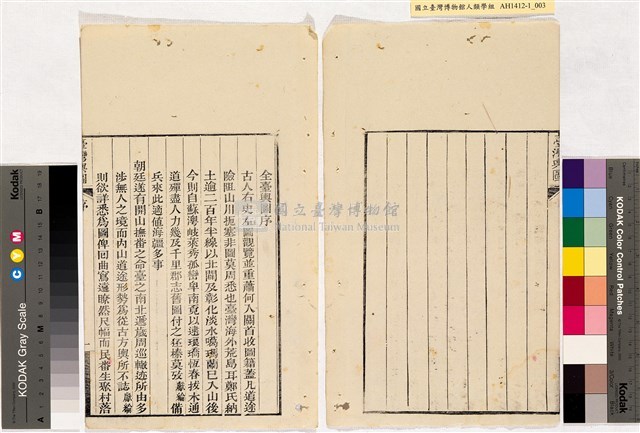 國立臺灣博物館人類學組 AH1412-1_003
臺灣輿圖
序
全臺輿圖序
古人右史左圖觀覽並重蕭何入關首收圖籍蓋凡道途
險阻山川扼塞非圖莫周悉也臺灣海外荒島耳鄭氏納
土逾二百年半線以北間及彰化淡水噶瑪蘭已入山後
今則自蘇澳岐萊秀孤巒卑南覓以達瑯𤩝恆春拔木通
道殫盡人力幾及千里郡志舊圖付之狂榛莫攷獻綸備
兵來此適值海疆多事
朝廷遂有開山撫番之命臺之南北遞歲周巡轍迹所由多
涉無人之境而內山道途形勢為從古方輿所不誌獻綸
則欲詳悉為圖俾回曲寫遠瞭然尺幅而民番生聚村落
臺灣輿圖
國立臺灣博物館
National Taiwan Museum
KODAK Gray Scale
Kodak
C Y M
A
M
B
KODAK Color Control Patches
Kodak